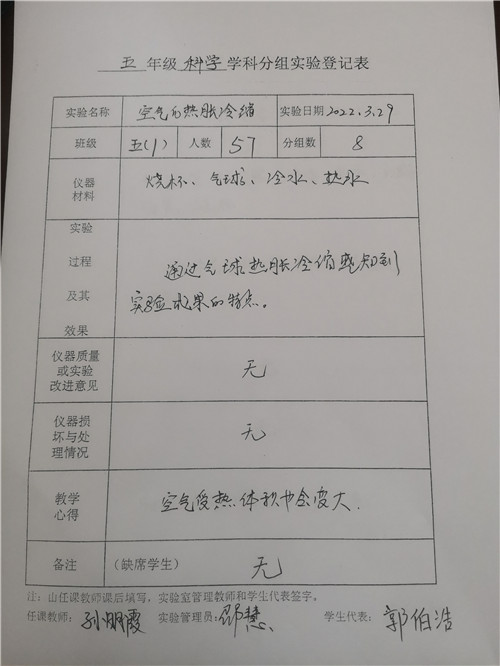 五 年级 科学 学科分组实验登记表
实验名称 空气的热胀冷缩 实验日期 2022.3.29
班级 五(1) 人数 57 分组数 8
仪器
材料
烧杯、气球、冷水、热水
实验
过程
及其
效果
通过气球热胀冷缩感知到
实验效果的特点。
仪器质量
或实验
改进意见
无
仪器损
坏与处
理情况
无
教学
心得
空气受热体积也会变大.
备注 (缺席学生) 无
注:由任课教师课后填写,实验室管理教师和学生代表签字。
任课教师: 孙明霞 实验管理员: 邵慧 学生代表: 郭伯浩